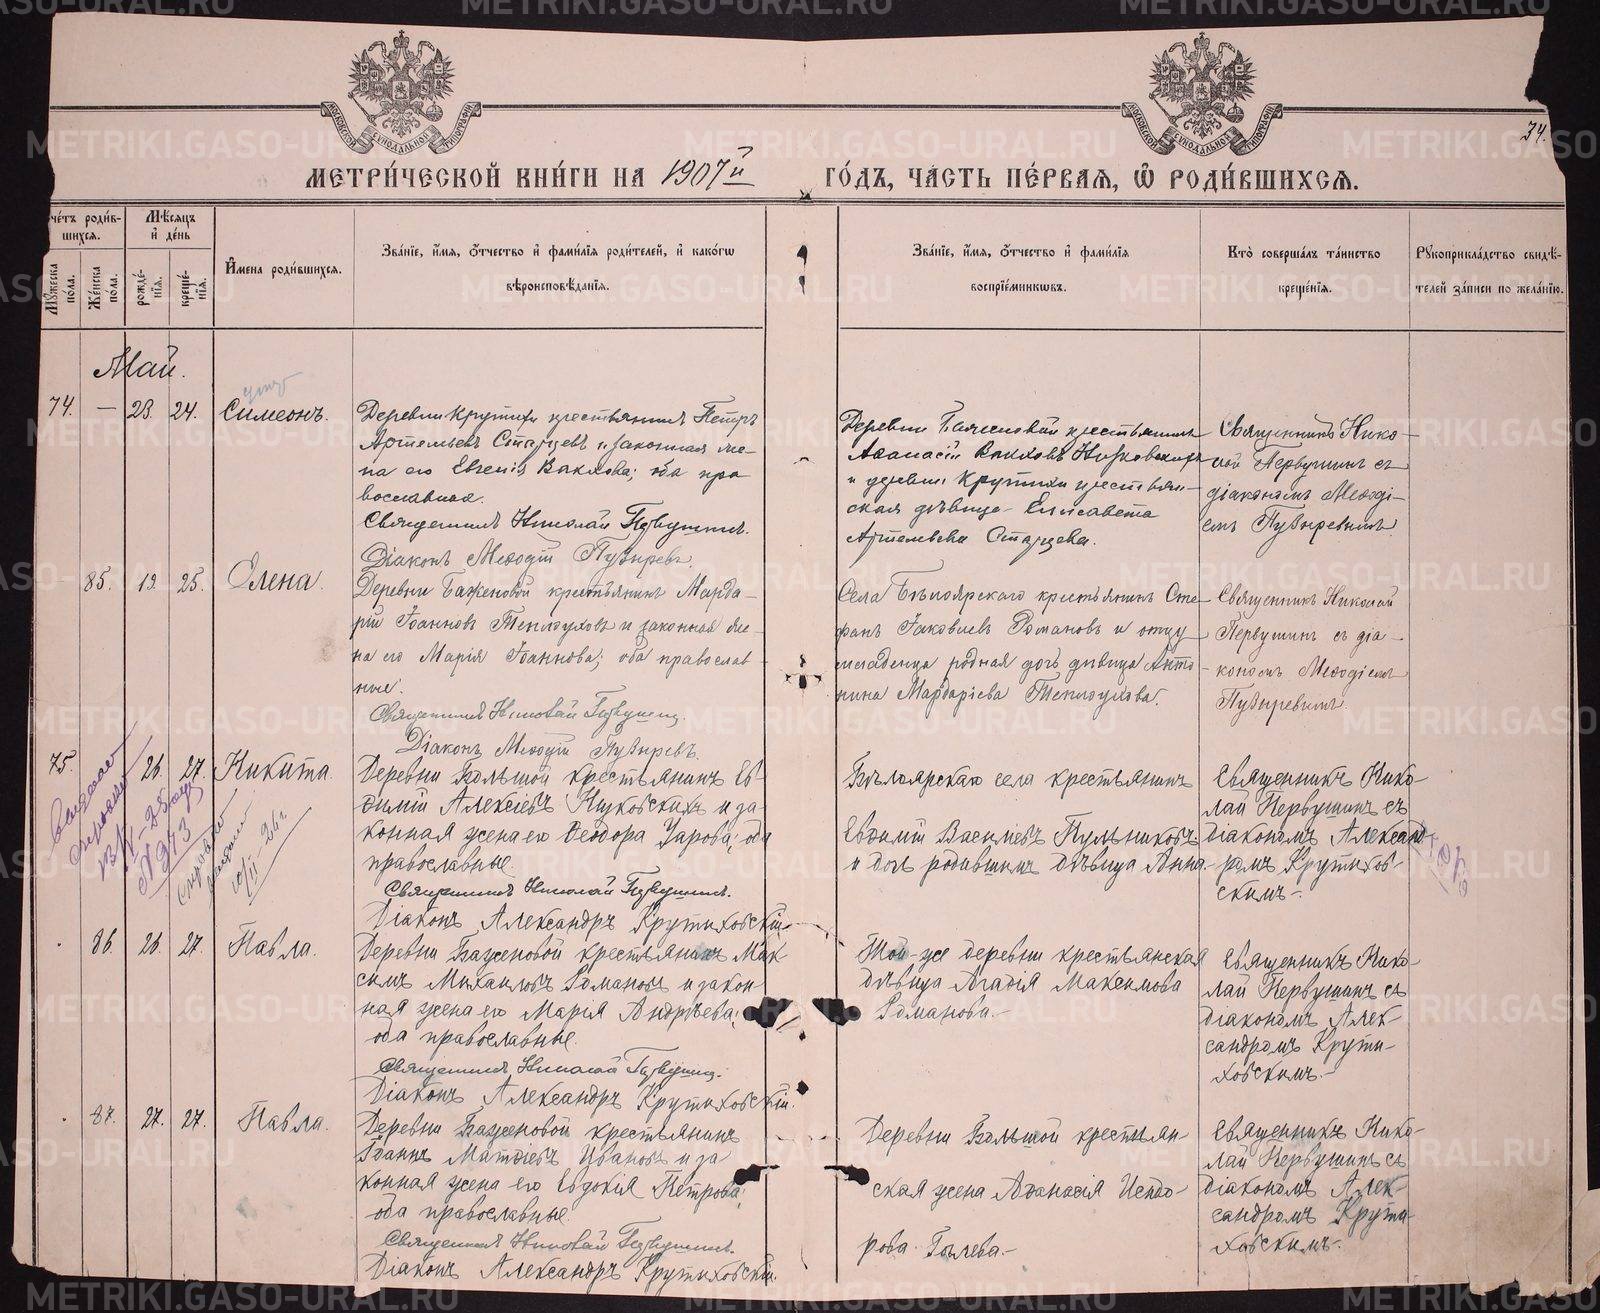 34.
МЕТРИЧЕСКОЙ КНИГИ НА 1907й ГОДЪ, ЧАСТЬ ПЕРВАЯ, Ѽ РОДИВШИХСЯ.
Счетъ родившихся.
Мужеска пола.
Женска пола.
Мѣсяцъ и день
рожденія.
крещенія.
Имена родившихся.
Званіе, имя, отчество и фамилія родителей, и какогѡ вѣроисповѣданія.
Званіе, имя, отчество и фамилія воспріемникѡвъ.
Кто совершалъ таинство крещенія.
Рукоприкладство свидѣтелей записи по желанію.
Май.
74. — 23. 24. Симеонъ.
Деревни Крутихи крестьянинъ Петръ
Артемьевъ Старцевъ и законная же-
на его Евгенія Вакхова; оба пра
вославные.
Священникъ Николай Первушинъ.
Діаконъ Меѳодій Пузыревъ.
Деревни Баженовой крестьянинъ
Аѳанасій Вакховъ Нижковскихъ
и деревни Крутихи крестьян-
ская дѣвица Елисавета
Артемьева Старцева.
Священникъ Нико-
лай Первушинъ съ
діакономъ Меѳоді-
емъ Пузыревымъ.
85. 19. 25. Елена.
Деревни Баженовой крестьянинъ Марда-
рій Іоанновъ Теплоуховъ и законная же-
на его Марія Іоаннова; оба православ-
ные.
Священникъ Николай Первушинъ.
Діаконъ Меѳодій Пузыревъ.
Села Бѣлоярскаго крестьянинъ Сте-
фанъ Іаковлевъ Романовъ и отцу
младенца родная дочь дѣвица Анто-
нина Мардаріева Теплоухова.
Священникъ Николай
Первушинъ съ діа-
кономъ Меѳодіемъ
Пузыревымъ.
75. 26. 27. Никита.
Деревни Большой крестьянинъ Ев-
ѳимій Алексіевъ Нижковскихъ и за-
конная жена его Ѳеодора Уарова; оба
православные.
Священникъ Николай Первушинъ.
Діаконъ Александръ Крутиховскій.
Бѣлоярскаго села крестьянинъ
Евѳимій Василіевъ Пульниковъ
и дочь родившимъ дѣвица Анна.
Священникъ Нико-
лай Первушинъ съ
діакономъ Александ-
ромъ Крутихов-
скимъ.
№ 973
86. 26. 27. Павла.
Деревни Баженовой крестьянинъ Мак-
симъ Михаиловъ Романовъ и закон-
ная жена его Марія Андреева;
оба православные.
Священникъ Николай Первушинъ.
Діаконъ Александръ Крутиховскій.
Той-же деревни крестьянская
дѣвица Агафія Максимова
Романова.
Священникъ Нико-
лай Первушинъ съ
діакономъ Алек-
сандромъ Крути-
ховскимъ.
87. 27. 27. Павла.
Деревни Баженовой крестьянинъ
Іоаннъ Матѳіевъ Ивановъ и за
конная жена его Евдокія Петрова;
оба православные.
Священникъ Николай Первушинъ.
Діаконъ Александръ Крутиховскій.
Деревни Большой крестьян-
ская жена Аѳанасія Исидо-
рова
Священникъ Нико-
лай Первушинъ съ
діакономъ Алек-
сандромъ Крути-
ховскимъ.
METRIKI.GASO-URAL.RU